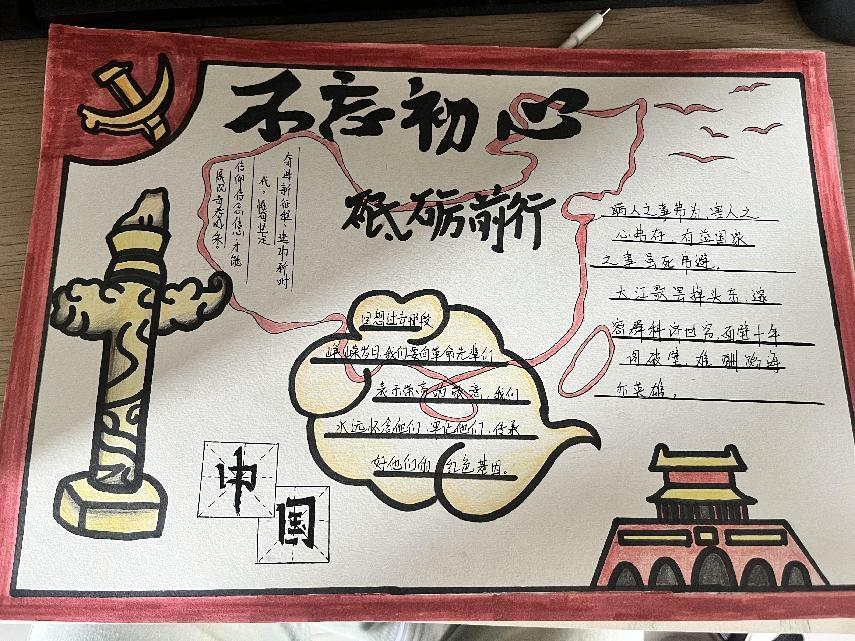 不忘初心
砥砺前行
奋进新征程,建功新时
代,惟有坚定
信仰信念信心,才能
展现奋
利人之事常为,害人之
心弗存,有益国家
之事虽死弗避。
大江歌罢掉头东,邃
密群科济世穷,面壁十年
图破壁,难酬蹈海
亦英雄。
回想过去那段
峥嵘岁月,我们要向革命先辈们
表示崇高的敬意,我们
永远怀念他们、牢记他们,传承
好他们的红色基因。
中
国